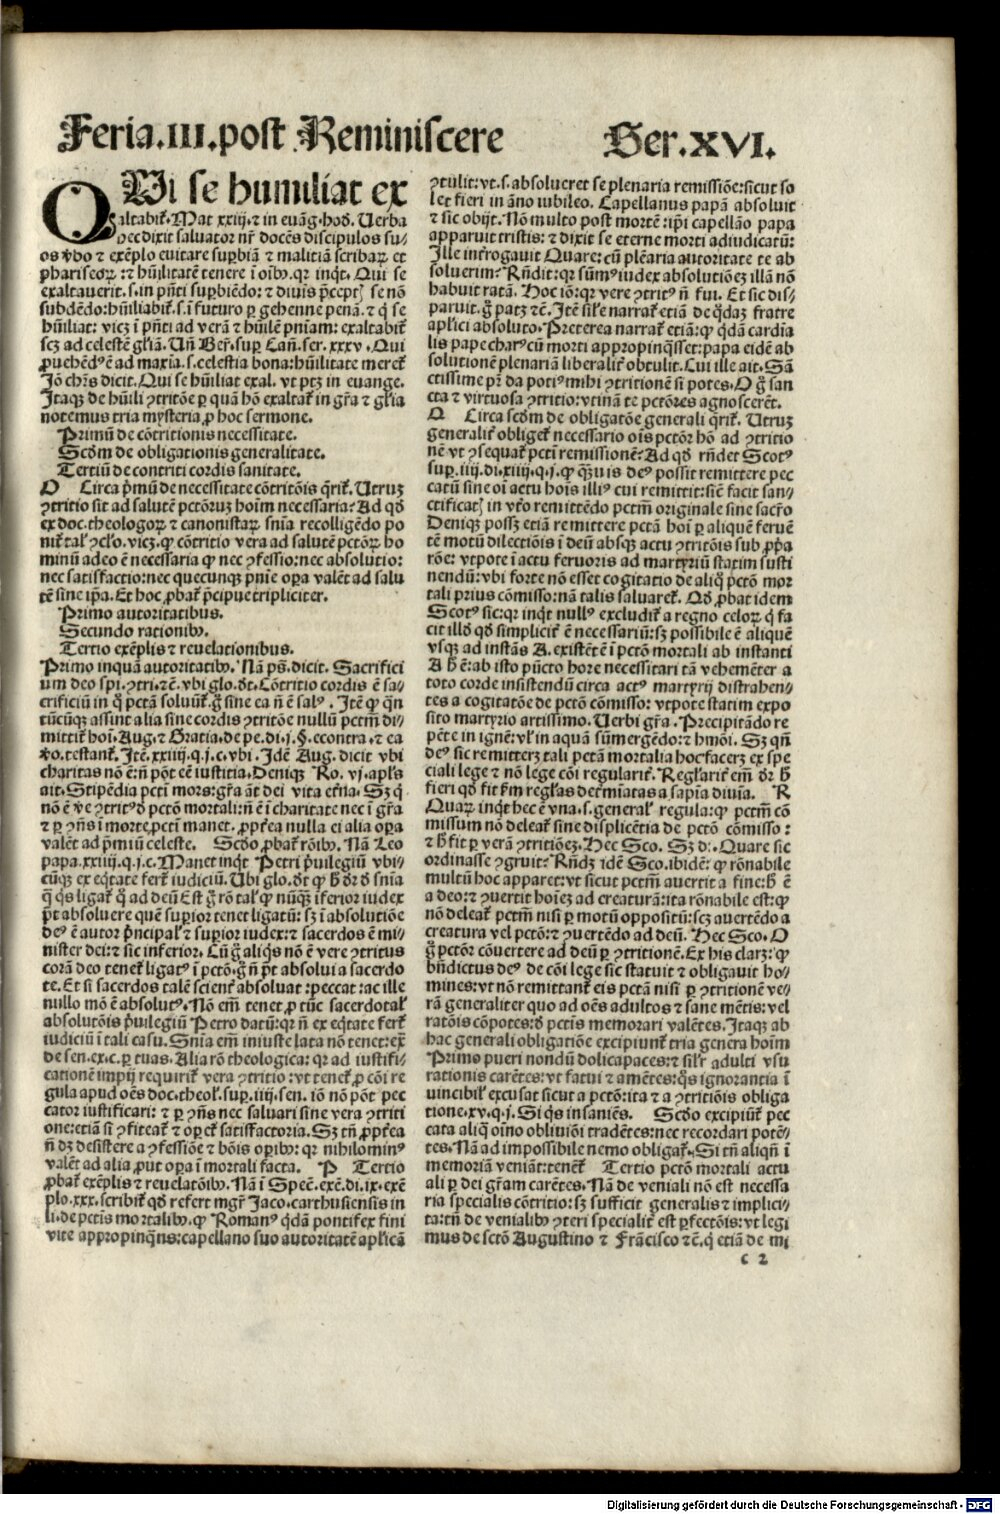 Feria.III.post Reminiscere Ser.XVI.
QUi se humiliat ex
altabit᷑. Mat xxiij. ⁊ in euāg. hod. Uerba
hec dixit saluator nr̄ docēs discipulos su⸗
os v̓bo ⁊ exēplo euitare sup̱biā ⁊ malitiā scribaꝝ et
phariseoꝝ: ⁊ hūilitatē tenere ī oīb. qꝛ inq̇t. Qui se
exaltauerit. s. in pn̄ti sup̱biēdo: ⁊ diuīs p̄cept̄ se nō
subdēdo: hūiliabit᷑. s. ī futuro ꝑ gehenne penā. ⁊ q̇ se
hūiliat: vicꝫ ī pn̄ti ad verā ⁊ hūilē pn̄iam: exaltabit᷑
scꝫ ad celestē gl̄iā. Un̄ Ber̄. sup̱ Cān̄. ser. xxxv. Qui
ꝓuehēd᷒ ē ad maxīa. s. celestia bona: hūilitate meret᷑
Jō chr̄s dicit. Qui se hūiliat exal. vt ptꝫ in euange.
Itaqꝫ de hūili ꝯtritōe ꝑ quā hō exaltat᷑ in gr̄a ⁊ gl̄ia
notemus tria mysteria ꝓ hoc sermone.
Primū de cōtritionis necessitate.
Scd̄m de obligationis generalitate.
Tertiū de contriti cordis sanitate.
O Circa p̄mū de necessitate cōtritōis q̄rit᷑. Utruꝫ
ꝯtritio sit ad salutē pctōruꝫ hoīm necessaria? Ad qd̄
ex doc. theologoꝝ ⁊ canonistaꝝ sn̄ia recolligēdo po
nit᷑ tal̓ ꝯclo. vicꝫ. ꝙ cōtritio vera ad salutē pctōꝝ ho
minū adeo ē necessaria ꝙ nec ꝯfessio: nec absolutio:
nec satisfactio: nec quecunqꝫ pn̄ie oꝑa valēt ad salu
tē sine ip̄a. Et hoc ꝓbat᷑ p̄cipue tripliciter.
Primo autoritatibus.
Secundo rationib.
Tertio exēplis ⁊ reuelationibus.
Primo inquā autoritatib. Nā ps̄. dicit. Sacrifici
um deo spi. ꝯtri. ⁊c̄. vbi glo. d̄t. Cōtritio cordis ē sa⸗
crificiū in q̇ pctā soluūt᷑. g̊ sine ea n̄ ē sal᷒. Itē ꝙ qn̄
tūcūqꝫ assint alia sine cordis ꝯtritōe nullū pctm̄ di⸗
mittit᷑ hoī. Aug. ⁊ Gratia. de pe. di. j. §. econtra. ⁊ ea
v̓o. testant᷑. Itē. xxiiij. q. j. c. vbi. Idē Aug. dicit vbi
charitas nō ē: n̄ pōt eē iustitia. Deniqꝫ Ro. vj. apl̄s
ait. Stipēdia pcti mors: gr̄a āt dei vita et̓na. Sꝫ q̇
nō ē v̓e ꝯtrit᷒ d̓ pctō mortali: n̄ ē ī charitate nec ī gr̄a
⁊ ꝑ ꝯn̄s ī morte pcti manet. ꝓpt̓ea nulla ei alia oꝑa
valēt ad p̄miū celeste. Scd̄o ꝓbat᷑ rōib. Nā Leo
papa. xxiiij. q. j. c. Manet inq̇t Petri p̄uilegiū vbi⸗
cūqꝫ ex eq̇tate fert᷑ iudiciū. Ubi glo. d̄t ꝙ h̄ d̄r d̓ sn̄ia
q̄ q̇s ligat᷑ q̊ ad deū Est g̊ rō tal̓ ꝙ nūq̄ꝫ īferior iudex
p̄t absoluere quē suꝑior tenet ligatū: sꝫ ī absolutiōe
de᷒ ē autor p̄ncipal̓ ⁊ suꝑior iudex: ⁊ sacerdos ē mi⸗
nister dei: ⁊ sic inferior. Cū g̊ aliq̇s nō ē vere ꝯtritus
corā deo tenet᷑ ligat᷒ ī pctō. g̊ n̄ p̄t absolui a sacerdo
te. Et si sacerdos talē scient̓ absoluat: peccat: ac ille
nullo mō ē absolut᷒. Nō em̄ tenet ꝓ tūc sacerdotal̓
absolutōis p̄uilegiū Petro datū: qꝛ n̄ ex eq̇tate fert᷑
iudiciū ī tali casu. Snīa em̄ iniuste lata nō tenet: ex̄
de sen. ex. c. ꝑ tuas. Alia rō theologica: qꝛ ad iustifi⸗
cationē impij requirit᷑ vera ꝯtritio: vt tenet᷑ ꝓ cōi re
gula apud oēs doc. theol. sup̱. iiij. sen. iō nō pōt pec
cator iustificari: ⁊ ꝑ ꝯn̄s nec saluari sine vera ꝯtriti
one: etiā si ꝯfiteat᷑ ⁊ oꝑet᷑ satisfactoria. Sꝫ tn̄ ꝓpt̓ea
n̄ dꝫ desistere a ꝯfessiōe ⁊ bōis oꝑib: qꝛ nihilomin᷒
valēt ad alia ꝓut oꝑa ī mortali facta. P Tertio
ꝓbat᷑ exēplis ⁊ reuelatōib. Nā ī Spec̄. exē. di. ix. exē
plo. xxx. scribit᷑ qd̄ refert mgr̄ Jaco. carthusiensis in
li. de pctis mortalib. ꝙ Roman᷒ q̇dā pontifex fini
vite appropinq̄ns: capellano suo autoritatē apl̄icā
ꝯtulit: vt. s. absolueret se plenaria remissiōe: sicut so
let fieri in āno iubileo. Capellanus papā absoluit
⁊ sic obijt. Nō multo post mortē: ip̄i capellāo papa
apparuit tristis: ⁊ dixit se eterne morti adiudicatū:
Ille int̓rogauit Quare: cū plēaria autoritate te ab
soluerim? Rn̄dit: qꝛ sūm᷒ iudex absolutiōeꝫ illā nō
habuit ratā. Hoc iō: qꝛ vere ꝯtrit᷒ n̄ fui. Et sic dis⸗
paruit. g̊ patꝫ ⁊c̄. Itē sil̓e narrat᷑ etiā de q̇daꝫ fratre
apl̄ici absoluto. Preterea narrat᷑ etiā: ꝙ q̇dā cardia
lis pape char᷒ cū morti appropinq̄sset: papa eidē ab
solutionē plenariā liberalit̓ obtulit. Cui ille ait. Sā
ctissime pr̄ da poti᷒ mihi ꝯtritionē si potes. O g̊ san
cta ⁊ virtuosa ꝯtritio: vtinā te pctōres agnoscerēt.
Q Circa scd̄m de obligatōe generali q̄rit᷑. Utruꝫ
generalit̓ obliget᷑ necessario oīs pctōr hō ad ꝯtritio
nē vt ꝯsequat᷑ pcti remissionē? Ad qd̄ rn̄det Scot᷒
sup̱. iiij. di. xiiij. q. j. ꝙ q̄ꝫuis de᷒ possit remittere pec
catū sine oī actu hoīs illi᷒ cui remittit: sic̄ facit san⸗
ctificat̄ in vt̓o remittēdo pctm̄ originale sine sacr̄o
Deniqꝫ possꝫ etiā remittere pctā hoī ꝑ aliquē feruē
tē motū dilectiōis ī deū absqꝫ actu ꝯtritōis sub ꝓp̄a
rōe: vtpote ī actu feruoris ad martyriū statim susti
nendū: vbi forte nō esset cogitatio de aliq̊ pctō mor
tali prius cōmisso: nā talis saluaret᷑. Qd̄ ꝓbat idem
Scot᷒ sic: qꝛ inq̇t null᷒ excludit᷑ a regno celoꝝ q̇ fa
cit illd̓ qd̄ simplicit̓ ē necessariū: sꝫ possibile ē aliquē
vsqꝫ ad instās A. existētē ī pctō mortali ab instanti
A h̄ ē: ab isto pūcto hore necessitari tā vehemēter a
toto corde insistendū circa act᷒ martyrij distrahen⸗
tes a cogitatōe de pctō cōmisso: vtpote statim expo
sito martyrio artissimo. Uerbi gr̄a. Precipitādo re
pēte in ignē: vl̓ in aquā sūmergēdo: ⁊ hmōi. Sꝫ qn̄
de᷒ sic remitterꝫ tali pctā mortalia hoc facerꝫ ex spe
ciali lege ⁊ nō lege cōi regularit̓. Regl̓arit̓ em̄ d̓r h̄
fieri qd̄ fit ẜm regl̓as det̓mīatas a sapīa diuīa. R
Quaꝝ inq̇t hec ē vna. s. general̓ regula: ꝙ pctm̄ cō
missum nō deleat᷑ sine displicētia de pctō cōmisso:
⁊ h̄ fit ꝑ verā ꝯtritiōeꝫ. Hec Sco. Sꝫ d̓: Quare sic
ordinasse ꝯgruit? Rn̄dꝫ idē Sco. ibidē: ꝙ rōnabile
multū hoc apparet: vt sicut pctm̄ auertit a fine: h̄ ē
a deo: ⁊ ꝯuertit hoīeꝫ ad creaturā: ita rōnabile est: ꝙ
nō deleat᷑ pctm̄ nisi ꝑ motū oppositū: scꝫ auertēdo a
creatura vel pctō: ⁊ ꝯuertēdo ad deū. Hec Sco. O
g̊ pctōr cōuertere ad deū ꝑ ꝯtritionē. Ex his clarꝫ: ꝙ
bn̄dictus de᷒ de cōi lege sic statuit ⁊ obligauit ho⸗
mines: vt nō remittant᷑ eis pctā nisi ꝑ ꝯtritionē ve⸗
rā generaliter quo ad oēs adultos ⁊ sane mētis: vel
ratōis cōpotes: d̓ pctis memorari valētes. Itaqꝫ ab
hac generali obligatiōe excipiunt᷑ tria genera hoīm
Primo pueri nondū doli capaces: ⁊ sil̓r adulti vsu
rationis carētes: vt fatui ⁊ amētes: q̊s ignorantia ī
uincibil̓ excusat sicut a pctō: ita ⁊ a ꝯtritiōis obliga
tione. xv. q. j. Si q̇s insaniēs. Scd̄o excipiūt᷑ pec
cata aliq̄ oīno obliuiōi tradētes: nec recordari potē⸗
tes. Nā ad impossibile nemo obligat᷑. Si tn̄ aliqn̄ ī
memoriā veniāt: tenet᷑ Tertio pctō mortali actu
ali ꝑ dei gr̄am carētes. Nā de veniali nō est necessa
ria specialis cōtritio: sꝫ sufficit generalis ⁊ implici⸗
ta: tn̄ de venialib ꝯteri specialit̓ est ꝑfectōis: vt legi
mus de sctō Augustino ⁊ Frācisco ⁊c̄. q̇ etiā de mi
c 2
Digitalisierung gefördert durch die Deutsche Forschungsgemeinschaft - DFG